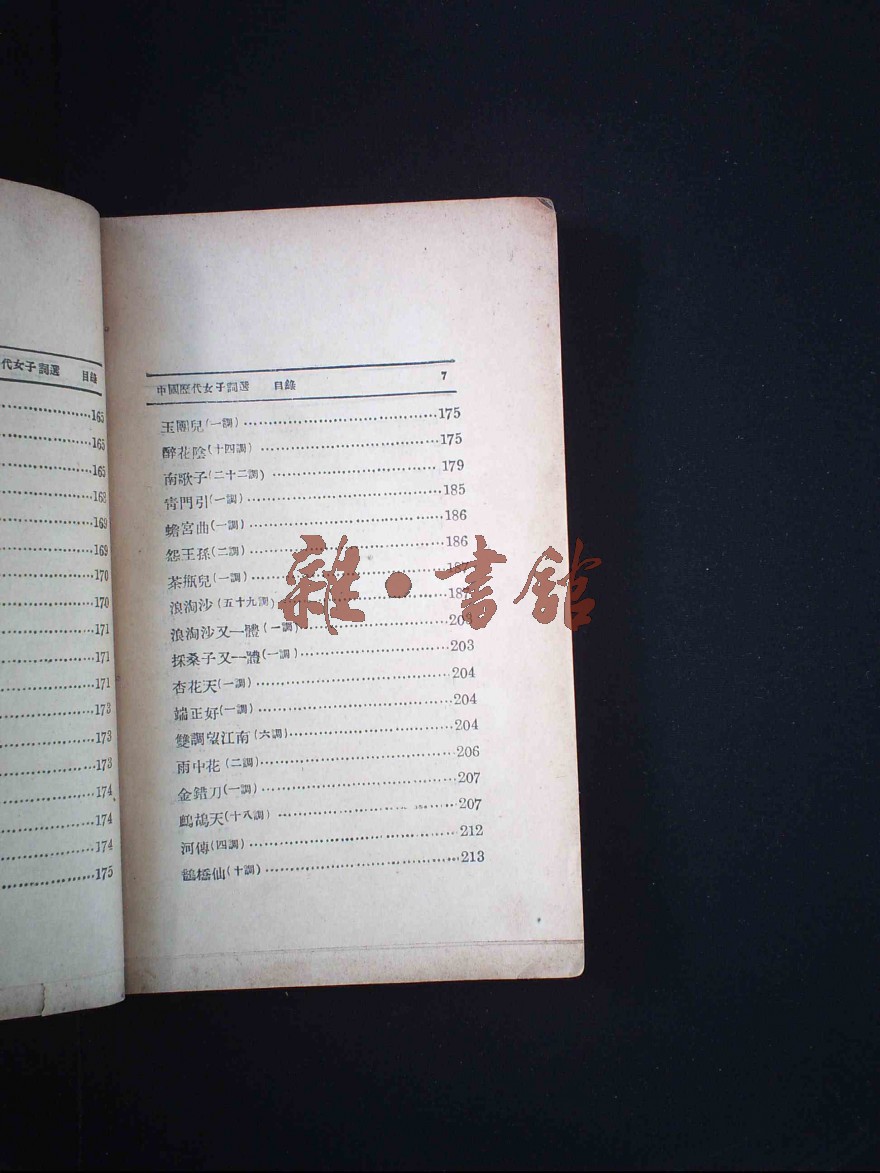 代女子詞選 目錄
165
165
165
168
169
169
170
170
171
171
171
173
173
173
174
174
174
175
中國歷代女子詞選 目錄 7
玉團兒(一調)175
醉花陰(十四調)175
南歌子(二十二調)179
青門引(一調)185
蟾宮曲(一調)186
怨王孫(二調)186
茶瓶兒(一調)
浪淘沙(五十九調)
浪淘沙又一體(一調)203
採桑子又一體(一調)203
杏花天(一調)204
端正好(一調)204
雙調望江南(六調)204
雨中花(二調)206
金錯刀(一調)207
鷓鴣天(十八調)207
河傳(四調)212
鵲橋仙(十調)213
雜·書館